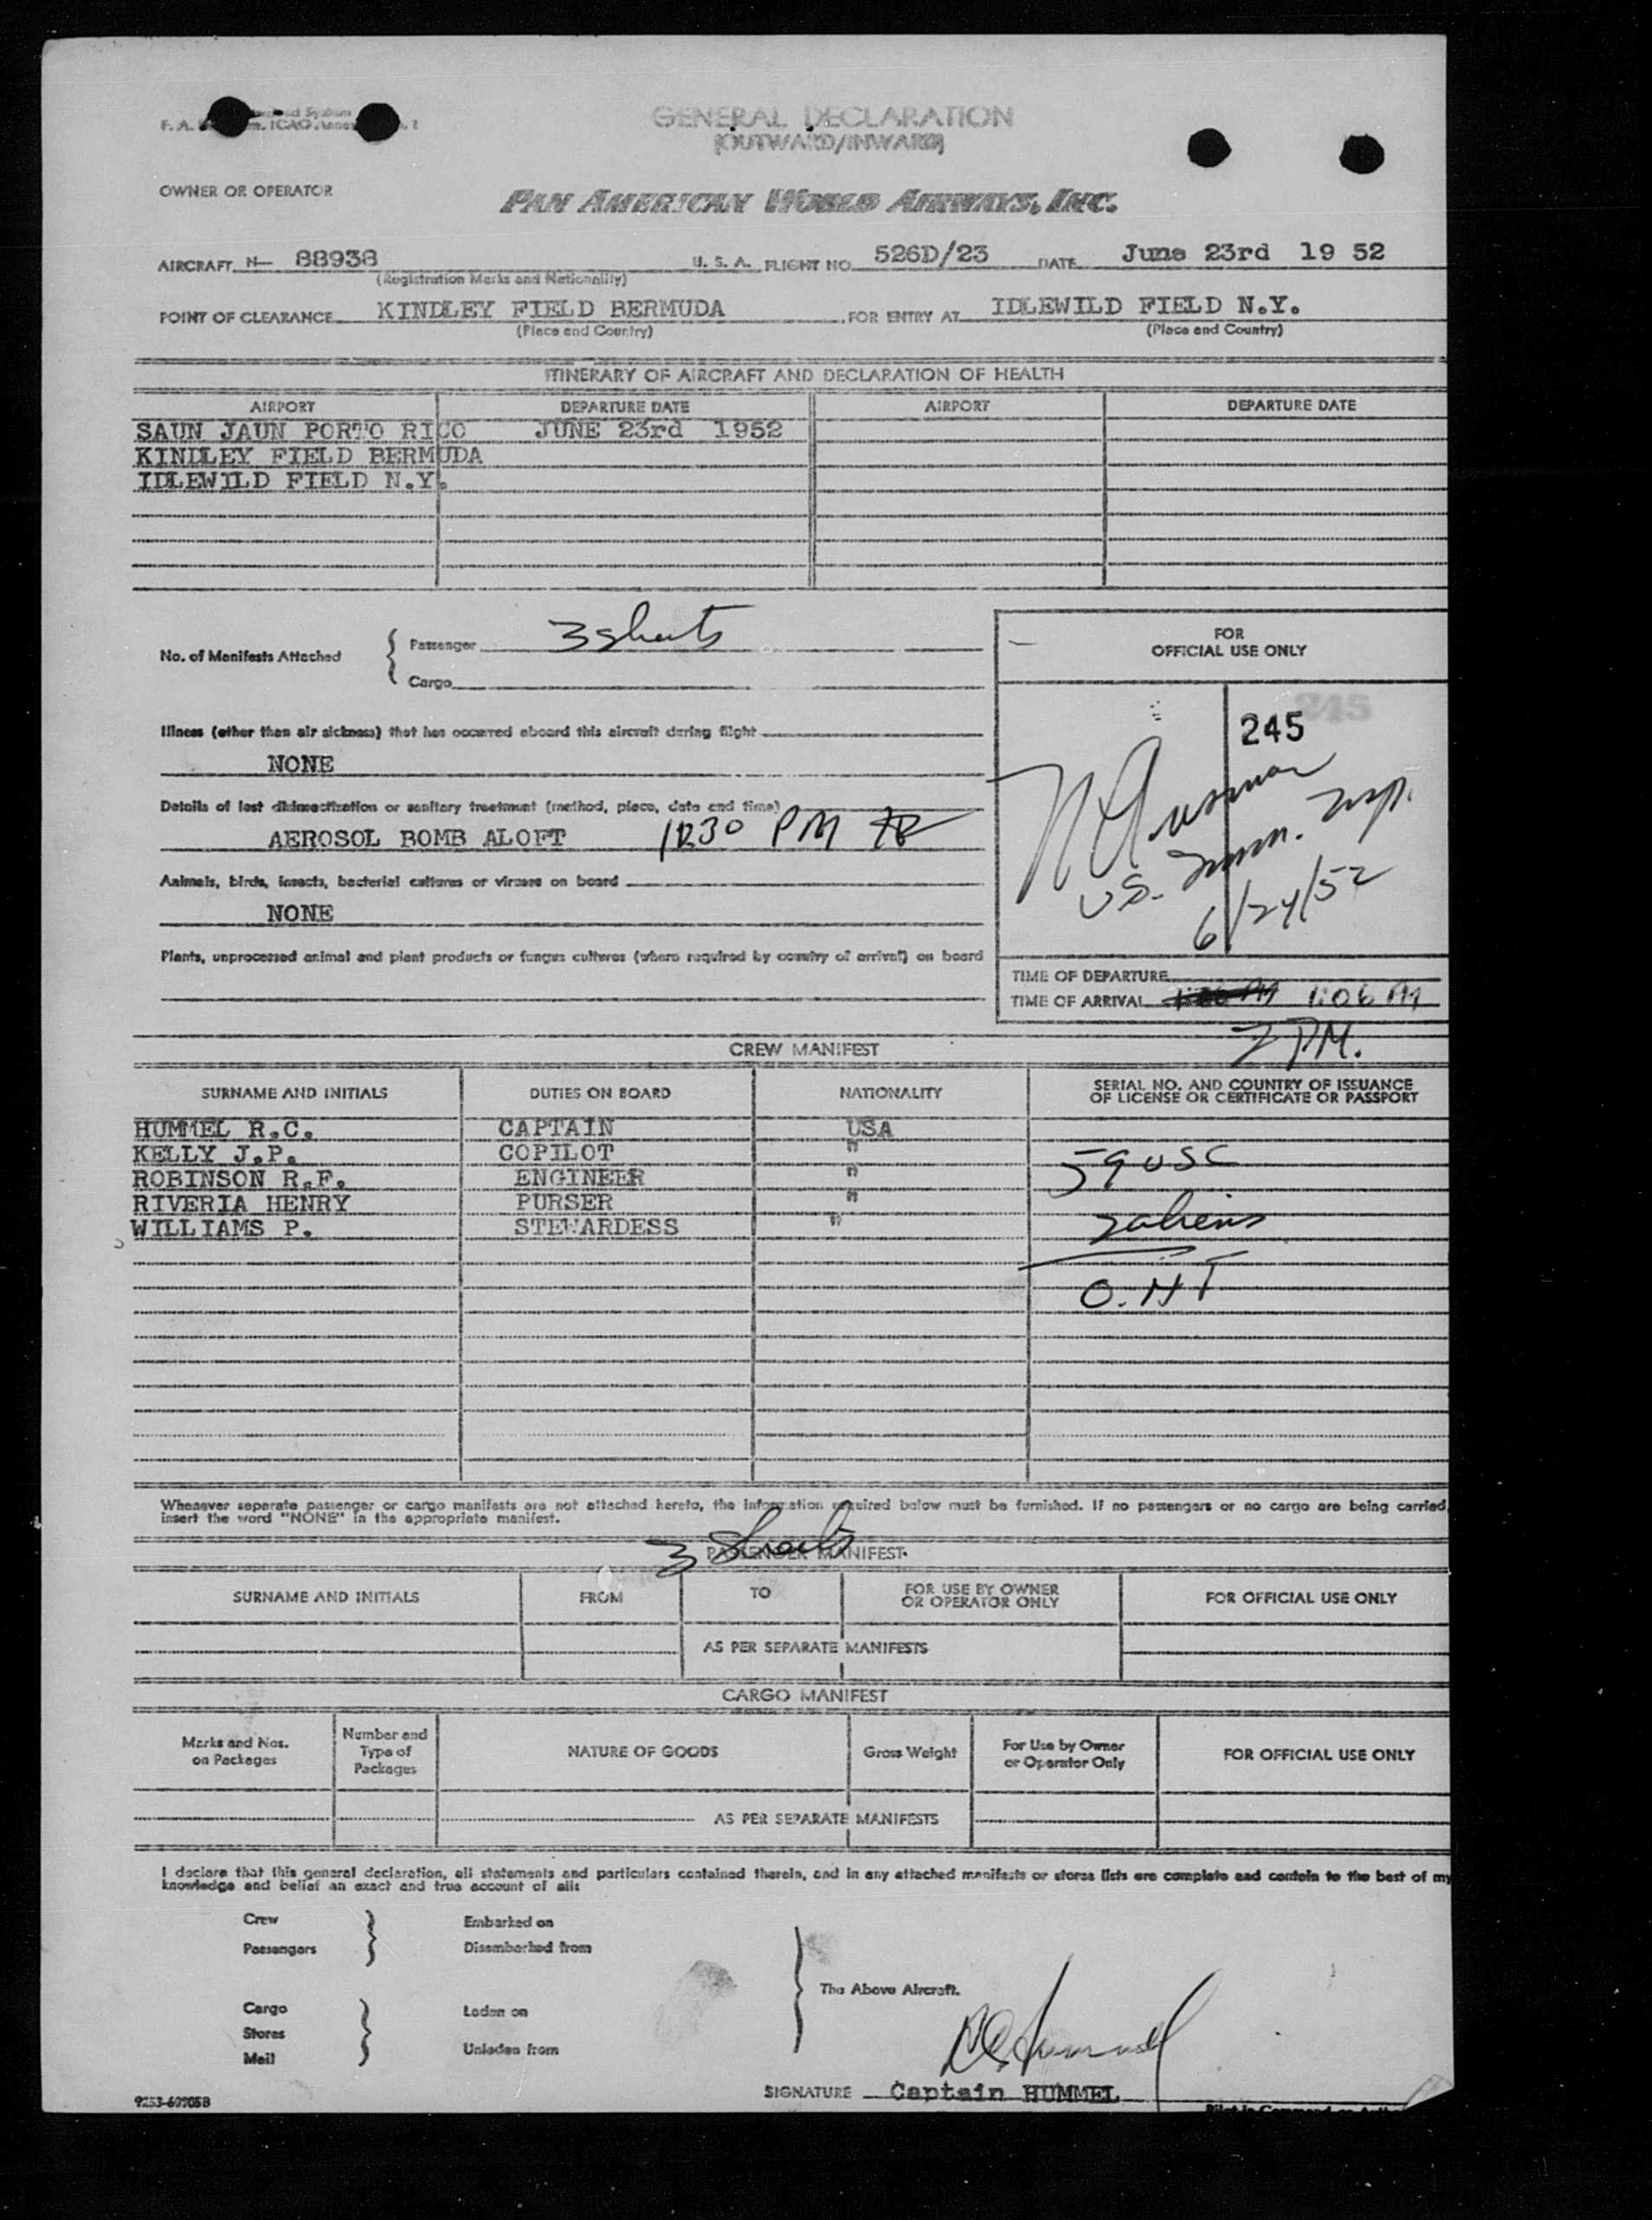 GENERAL DECLARATION
(OUTWARD/INWARD)
OWNER OR OPERATOR
PAN AMERICAN WORLD AIRWAYS, INC.
AIRCRAFT N- 88938 U. S. A. FLIGHT NO. 526D/23 DATE June 23rd 19 52
(Registration Marks and Nationality)
POINT OF CLEARANCE KINDLEY FIELD BERMUDA FOR ENTRY AT IDLEWILD FIELD N.Y.
(Place and Country) (Place and Country)
ITINERARY OF AIRCRAFT AND DECLARATION OF HEALTH
AIRPORT DEPARTURE DATE AIRPORT DEPARTURE DATE
SAUN JAUN PORTO RICO JUNE 23rd 1952
KINDLEY FIELD BERMUDA
IDLEWILD FIELD N.Y.
No. of Manifests Attached
Passenger 3 sheets
Cargo
FOR
OFFICIAL USE ONLY
245
Illness (other than air sickness) that has occurred aboard this aircraft during flight
NONE
Details of last disinsectization or sanitary treatment (method, place, date and time)
AEROSOL BOMB ALOFT PM
Animals, birds, insects, bacterial cultures or viruses on board
NONE
Plants, unprocessed animal and plant products or fungus cultures (where required by country of arrival) on board
U.S. Imm. Insp.
6/24/52
TIME OF DEPARTURE
TIME OF ARRIVAL 1:06 AM
2 PM.
CREW MANIFEST
SURNAME AND INITIALS DUTIES ON BOARD NATIONALITY SERIAL NO. AND COUNTRY OF ISSUANCE
OF LICENSE OR CERTIFICATE OR PASSPORT
HUMMEL R.C. CAPTAIN USA
KELLY J.P. COPILOT "
ROBINSON R.F. ENGINEER "
RIVERIA HENRY PURSER "
WILLIAMS P. STEWARDESS "
59 USC
2 aliens
Whenever separate passenger or cargo manifests are not attached hereto, the information required below must be furnished. If no passengers or no cargo are being carried,
insert the word "NONE" in the appropriate manifest.
3 Sheets
PASSENGER MANIFEST
SURNAME AND INITIALS FROM TO FOR USE BY OWNER
OR OPERATOR ONLY FOR OFFICIAL USE ONLY
AS PER SEPARATE MANIFESTS
CARGO MANIFEST
Marks and Nos.
on Packages
Number and
Type of
Packages
NATURE OF GOODS
Gross Weight
For Use by Owner
or Operator Only
FOR OFFICIAL USE ONLY
AS PER SEPARATE MANIFESTS
I declare that this general declaration, all statements and particulars contained therein, and in any attached manifests or stores lists are complete and contain to the best of my
knowledge and belief an exact and true account of all:
Crew Embarked on
Passengers Disembarked from
The Above Aircraft.
Cargo Laden on
Stores
Mail Unladen from
SIGNATURE Captain HUMMEL